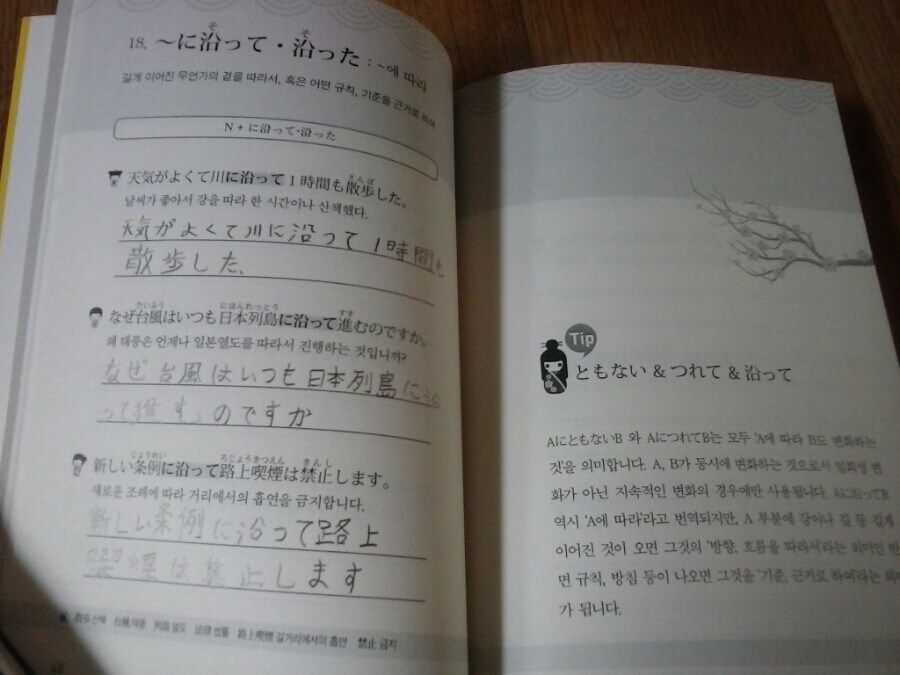 そ そ
18. ~に沿って・沿った : ~에 따라
길게 이어진 무언가의 곁을 따라서, 혹은 어떤 규칙, 기준을 근거로 하여
N + に沿って・沿った
さんぽ
天気がよくて川に沿って1時間も散歩した。
날씨가 좋아서 강을 따라 한 시간이나 산책했다.
天気がよくて川に沿って1時間も
散歩した。
たいふう にほんれっとう すす
なぜ台風はいつも日本列島に沿って進むのですか。
왜 태풍은 언제나 일본열도를 따라서 진행하는 것입니까?
なぜ台風はいつも日本列島に沿
って進むのですか
じょうれい ろじょうきつえん きんし
新しい条例に沿って路上喫煙は禁止します。
새로운 조례에 따라 거리에서의 흡연을 금지합니다.
新しい条例に沿って路上
喫煙は禁止します
散歩 산책 台風 태풍 列島 열도 法律 법률 路上喫煙 길거리에서의 흡연 禁止 금지
Tip
ともない & つれて & 沿って
AにともないB 와 AにつれてB는 모두 'A에 따라 B도 변화하는
것'을 의미합니다. A, B가 동시에 변화하는 것으로서 일회성 변
화가 아닌 지속적인 변화의 경우에만 사용됩니다. Aに沿ってB
역시 'A에 따라'라고 번역되지만, A 부분에 강이나 길 등 길게
이어진 것이 오면 그것의 '방향, 흐름을 따라서'라는 의미인 반
면 규칙, 방침 등이 나오면 그것을 '기준, 근거로 하여'라는 의미
가 됩니다.